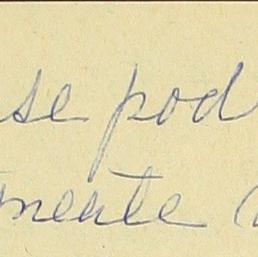 se pod
meate